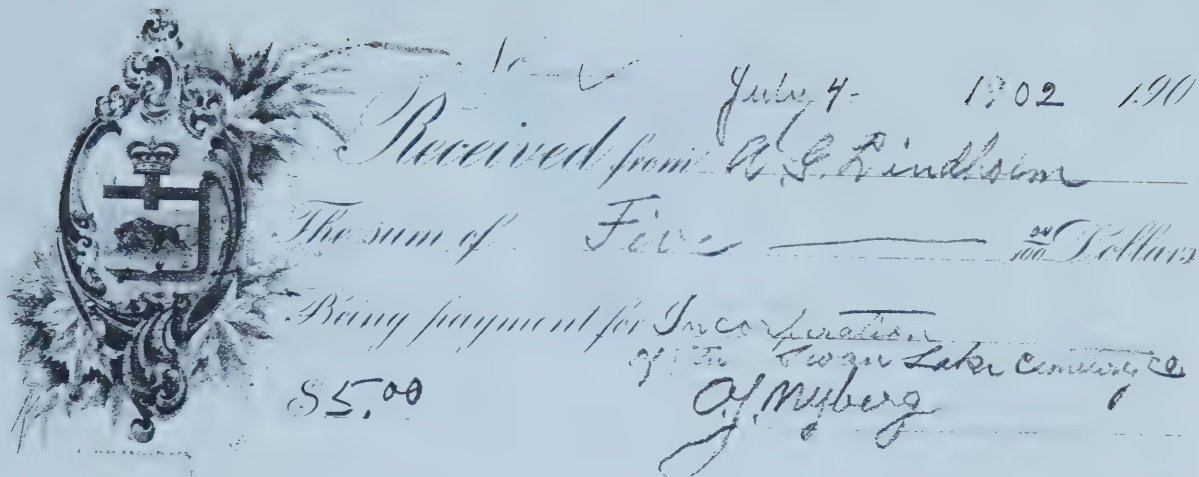 July 4- 1902 190
Received from A. G. Lindholm
The sum of Five 00/100 Dollars
Being payment for Incorporation
of The Swan Lake Cemetery Co
$5.00 O. J. Nyberg